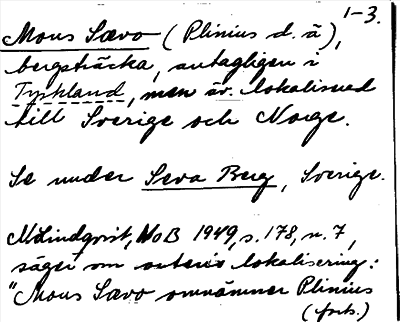 1-3.
Mons Sævo (Plinius d. ä),
bergsträcka, antagligen i
Tyskland, men äv. lokaliserad
till Sverige och Norge.
Se under Seva Berg, Sverige.
M Lindqvist, NoB 1949, s. 178, n. 7,
säger om lokalisering:
"Mons Sævo omnämner Plinius
(forts.)